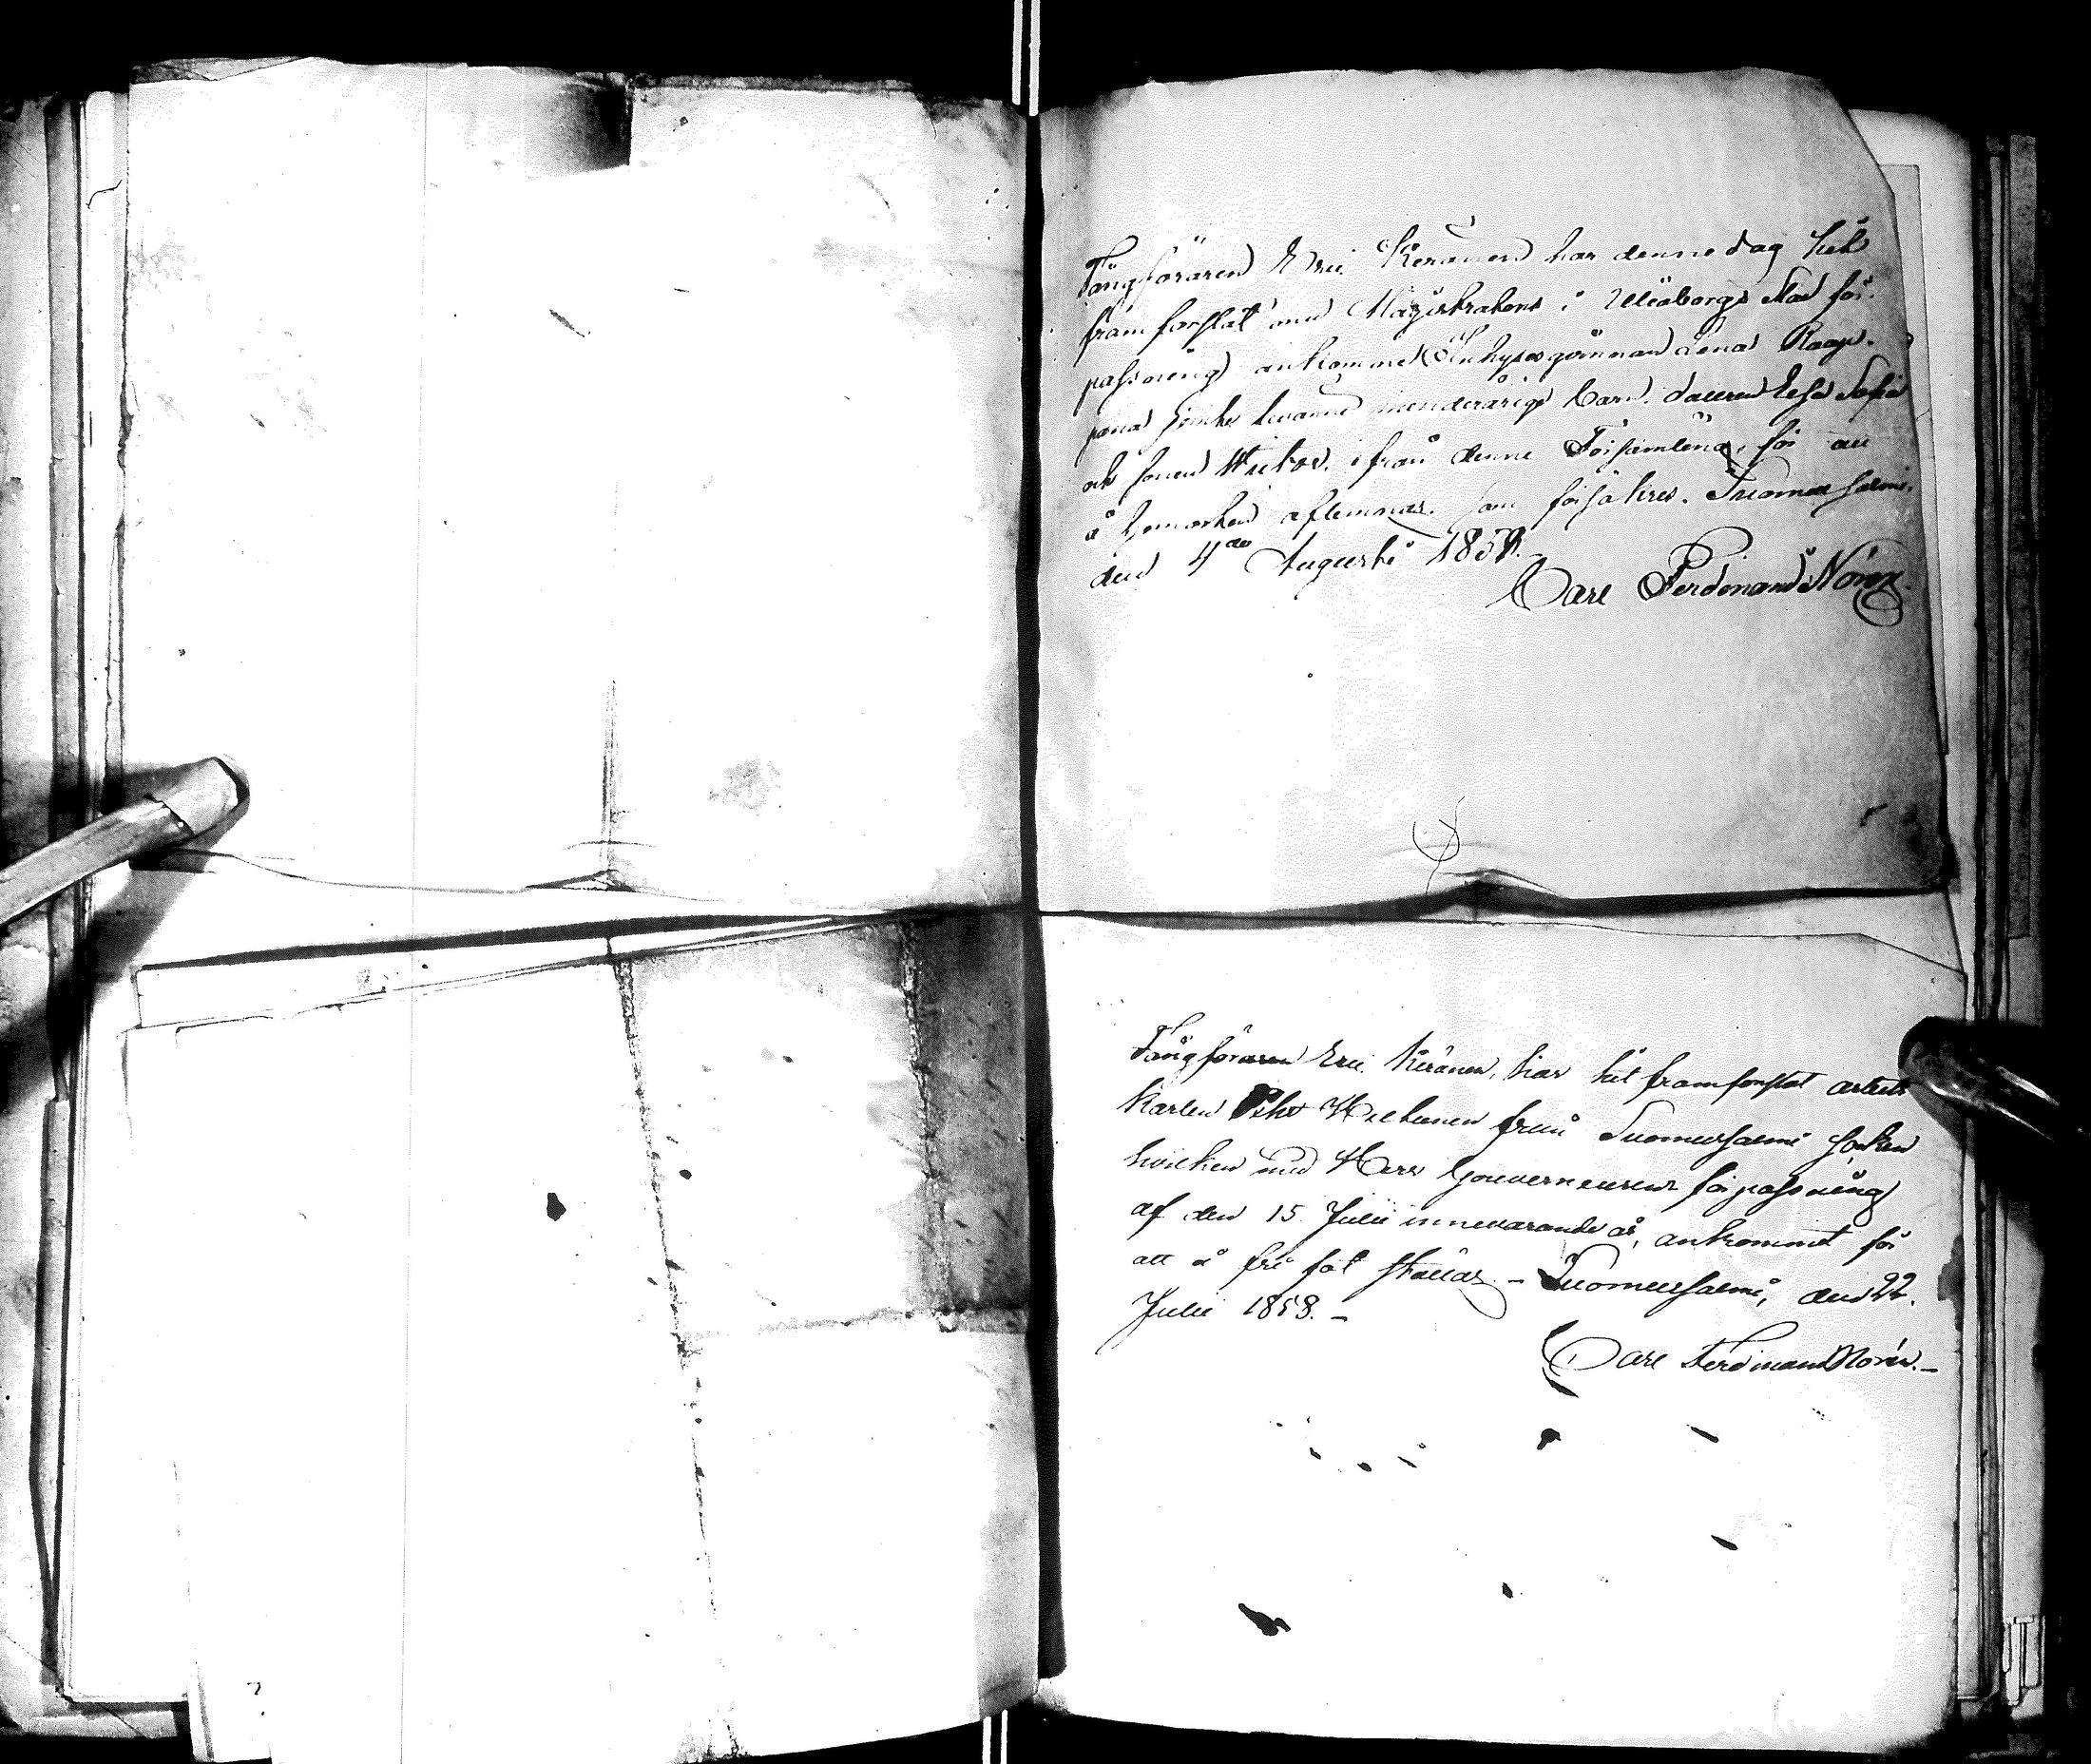 Fångföraren Eric Keränen har denne dag hit
framforslat med Magistratens i Uleåborgs Stad för-
passning ankomne Inhyses qvinnan Lena Raap-
panas tvänne minderåriga Barn, dottren Lesa Sofia
och sonen Wictor, ifrån denne Församling, för att
å hemorten aflemnas, som försäkras. Suomussalmi,
den 4de Augusti 1858.
Carl Ferdinand Norén.
Fångföraren Eric Keränen, har hit framforslat arbets
karlen Petter Heikkinen från Suomussalmi socken
hvilken med Herr Gouverneurens förpassning
af den 15 Julii innevarande år, ankommit för
att å fri fot ställas. - Suomussalmi, den 22.
Julii 1858. -
Carl Ferdinand Norén. -